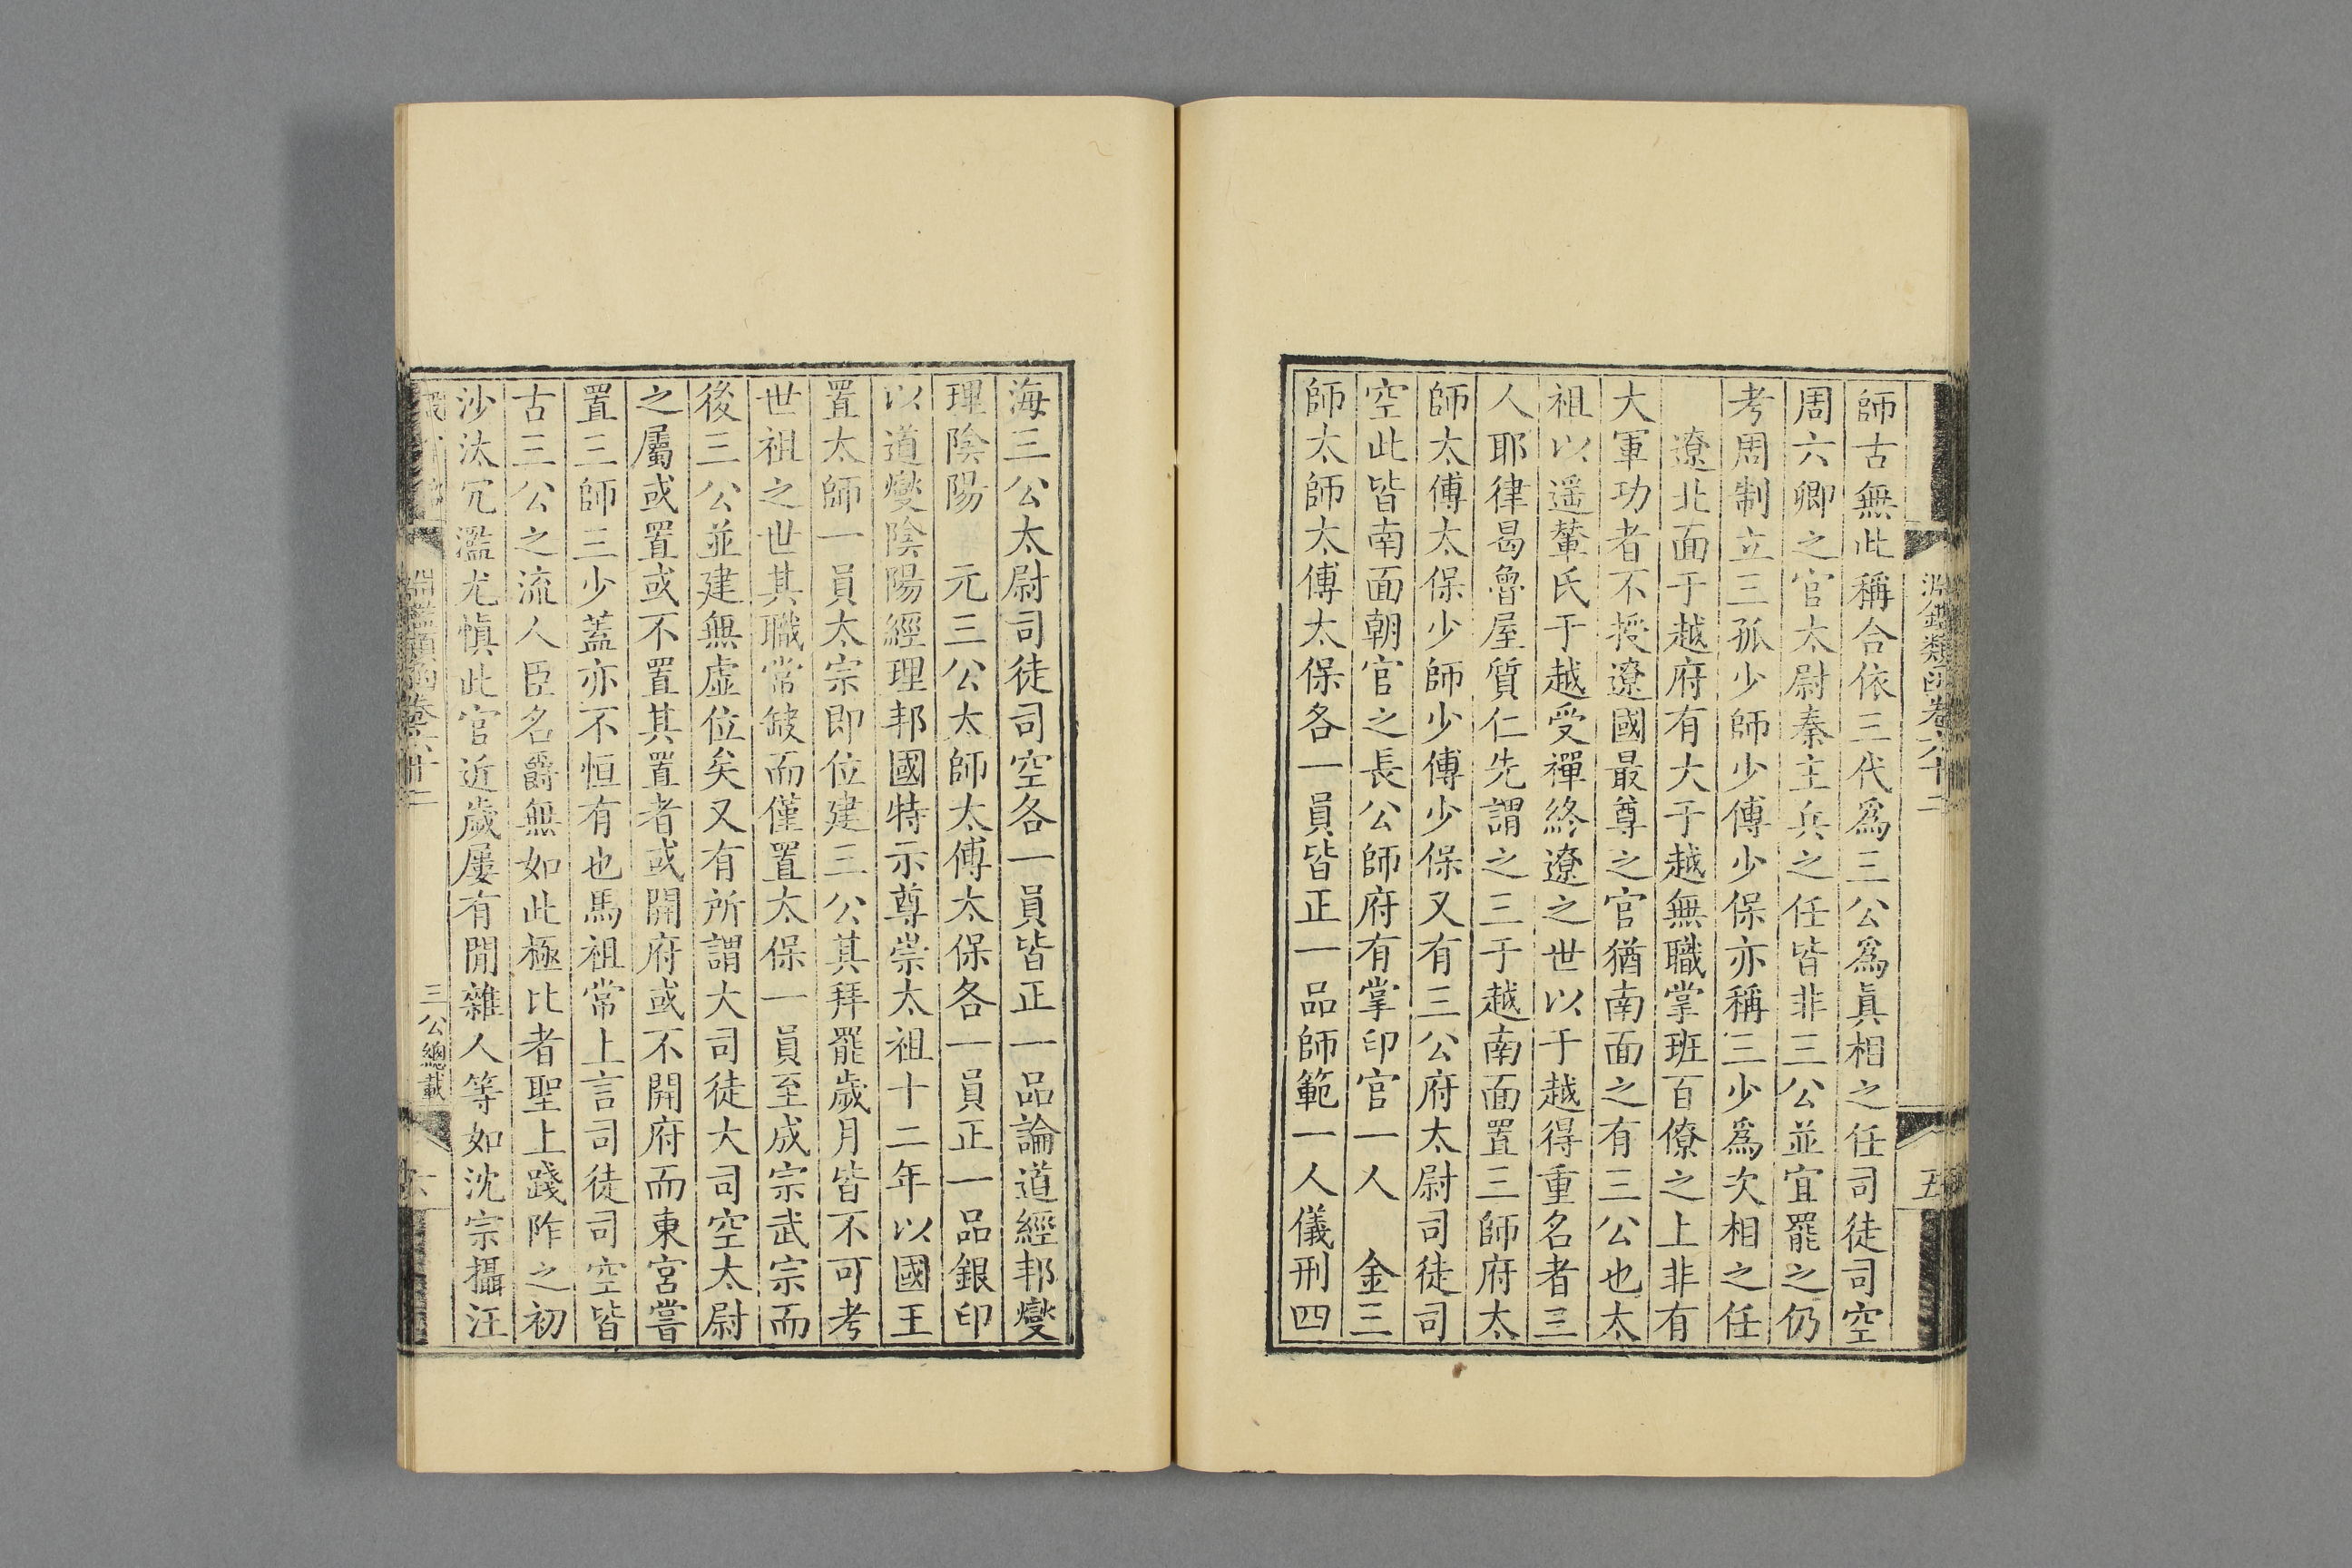 淵鑑類函卷六十二
五
師古無此稱合依三代爲三公爲眞相之任司徒司空
周六卿之官太尉秦主兵之任皆非三公並宜罷之仍
考周制立三孤少師少傅少保亦稱三少爲次相之任
遼北面于越府有大于越無職掌班百僚之上非有
大軍功者不授遼國最尊之官猶南面之有三公也太
祖以遥輦氏于越受禪終遼之世以于越得重名者三
人耶律曷魯屋質仁先謂之三于越南面置三師府太
師太傅太保少師少傅少保又有三公府太尉司徒司
空此皆南面朝官之長公師府有掌印官一人　金三
師太師太傅太保各一員皆正一品師範一人儀刑四
海三公太尉司徒司空各一員皆正一品論道經邦燮
理陰陽　元三公太師太傅太保各一員正一品銀印
以道燮陰陽經理邦國特示尊崇太祖十二年以國王
置太師一員太宗即位建三公其拜罷歲月皆不可考
世祖之世其職常缺而僅置太保一員至成宗武宗而
後三公並建無虛位矣又有所謂大司徒大司空太尉
之屬或置或不置其置者或開府或不開府而東宮嘗
置三師三少蓋亦不恒有也馬祖常上言司徒司空皆
古三公之流人臣名爵無如此極比者聖上踐阼之初
沙汰冗濫尤愼此官近歲屢有閒雜人等如沈宗攝汪
淵鑑類函卷六十二
三公總載
六